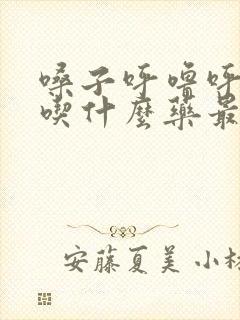 嗓子呼噜呼
喫什麼藥最
安藤夏美 小林